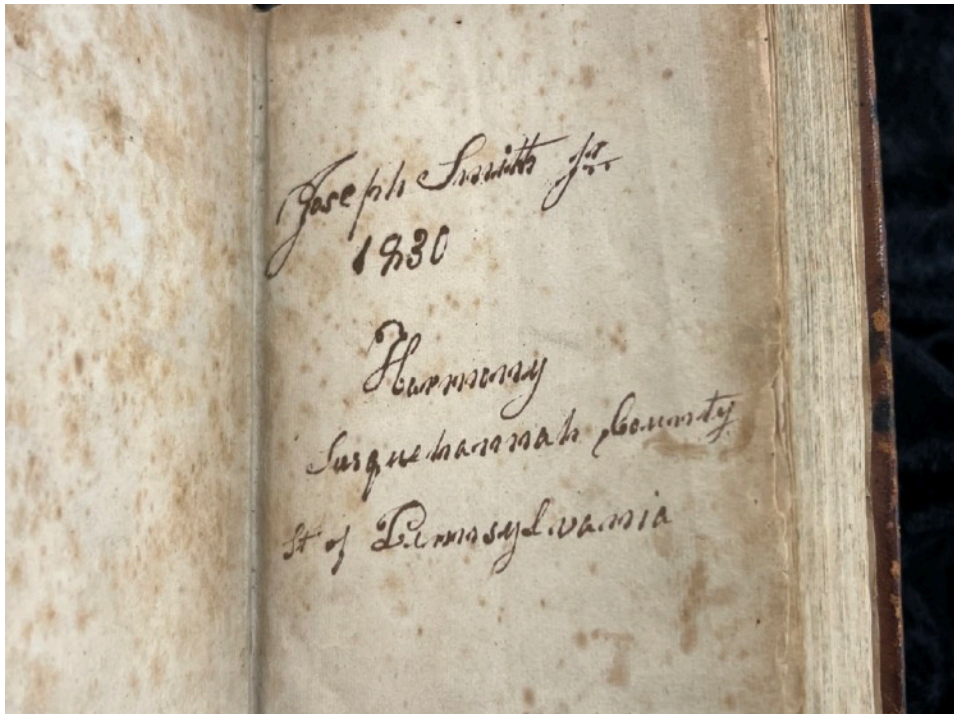 Joseph Smith Jr.
1830
Harmony
Susquehannah County
St of Pennsylvania